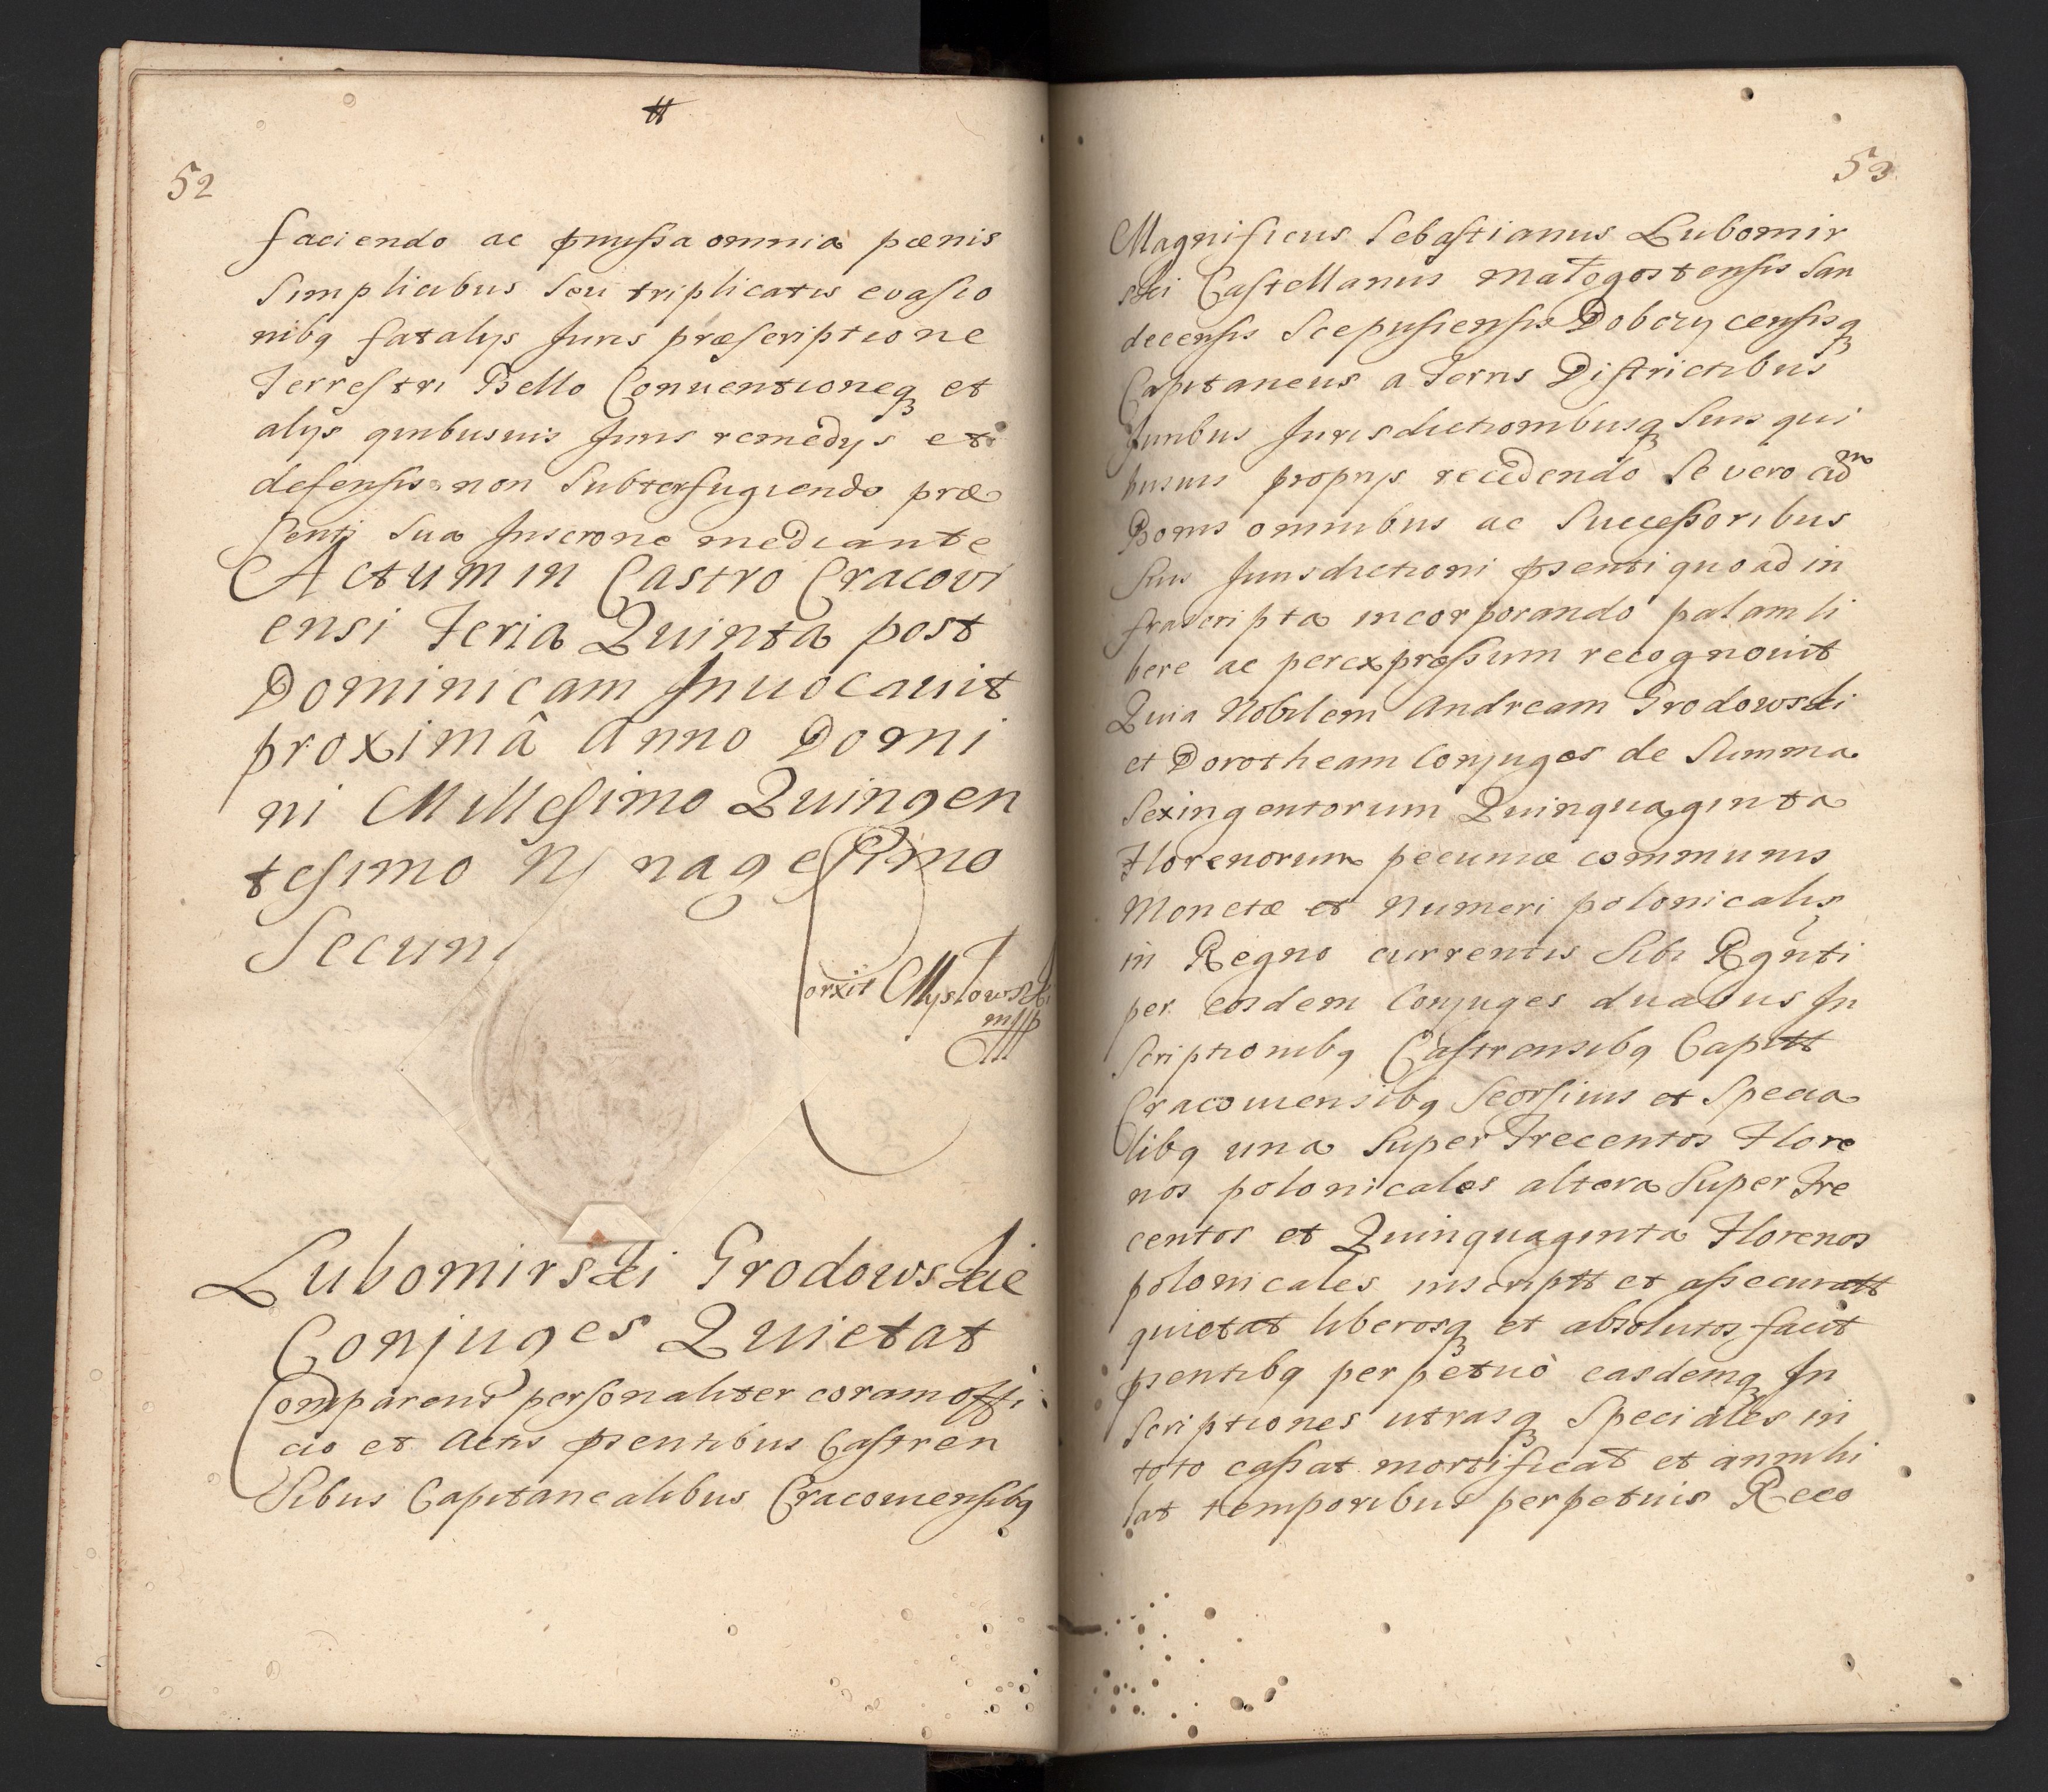 tt
52
faciendo ac pmissa omnia pœnis
Simplicibus Seu triplicatis evasio
nibq fatalys Juris præscriptione
Terrestri Bello Conuentioneq et
alys quibusuis Juris remedys et
defensis non Subterfugiendo præ
senti Sua Inscrone mediante
Actum in Castro Cracovi
ensi Feria Quinta post
Dominicam Inuocauit
proximâ Anno Domi
ni Millesimo Quingen
tesimo N nagesimo
Secun
orxit Mysłowski
mpp
Lubomirski Grodowskie
Conjuges Quietat
Comparens personaliter coram offi
cio et Actis psentibus Castren
Sibus Capitanealibus Cracouiensibq
53
Magnificus Sebastianus Lubomir
ski Castellanus Małogostensis San
decensis Scepusiensis Dobczycensisq
Capitaneus a Terris Districtibus
Juribus Jurisdictionibusq Suis qui
busuis proprys recedendo Se vero cū
Bonis omnibus ac Successoribus
Suis Jurisdictioni psenti quoad in
frascripta incorporando palam li
bere ac per expressum recognouit
Quia Nobilem Andream Grodowski
et Dorotheam Conjuges de Summa
Sexingentorum Quinquaginta
Florenorum pecuniæ communis
Monetæ et Numeri polonicalis
in Regno currentis Sibi Rgnti
per eosdem Conjuges duabus In
Scriptionibq Castrensibq Capitt
Cracouiensibq Seorsiuis et Specia
libq una Super Trecentos Flore
nos polonicales altera Super Tre
centos et Quinquaginta Florenos
polonicales inscriptt et assecuratt
quietat liberosq et absolutos facit
psentibq perpetuò easdemq In
Scriptiones utrasq Speciales in
toto cassat mortificat et annihi
lat temporibus perpetuis Reco